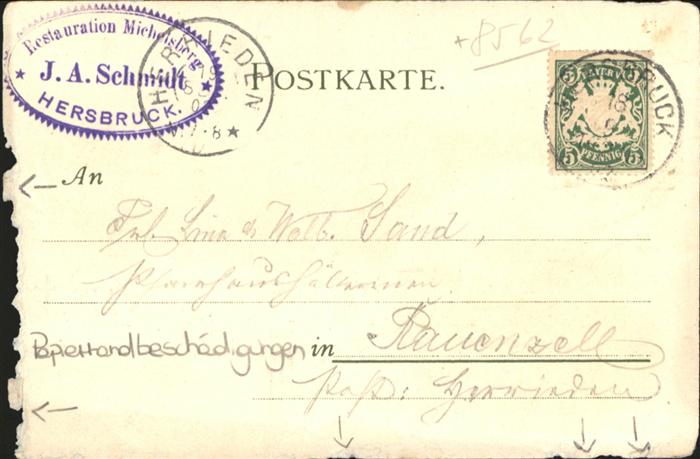 Restauration Michelsberg
J. A. Schmidt
HERSBRUCK.
HERRIEDEN
+8562
POSTKARTE.
BAYERN
5 5
PFENNIG
HERSBRUCK
18
An
Frl. Lina & Walb. Sand,
Pfarrhaushälterinnen
Papierrandbeschädigungen in Rauenzell
Post: Herrieden